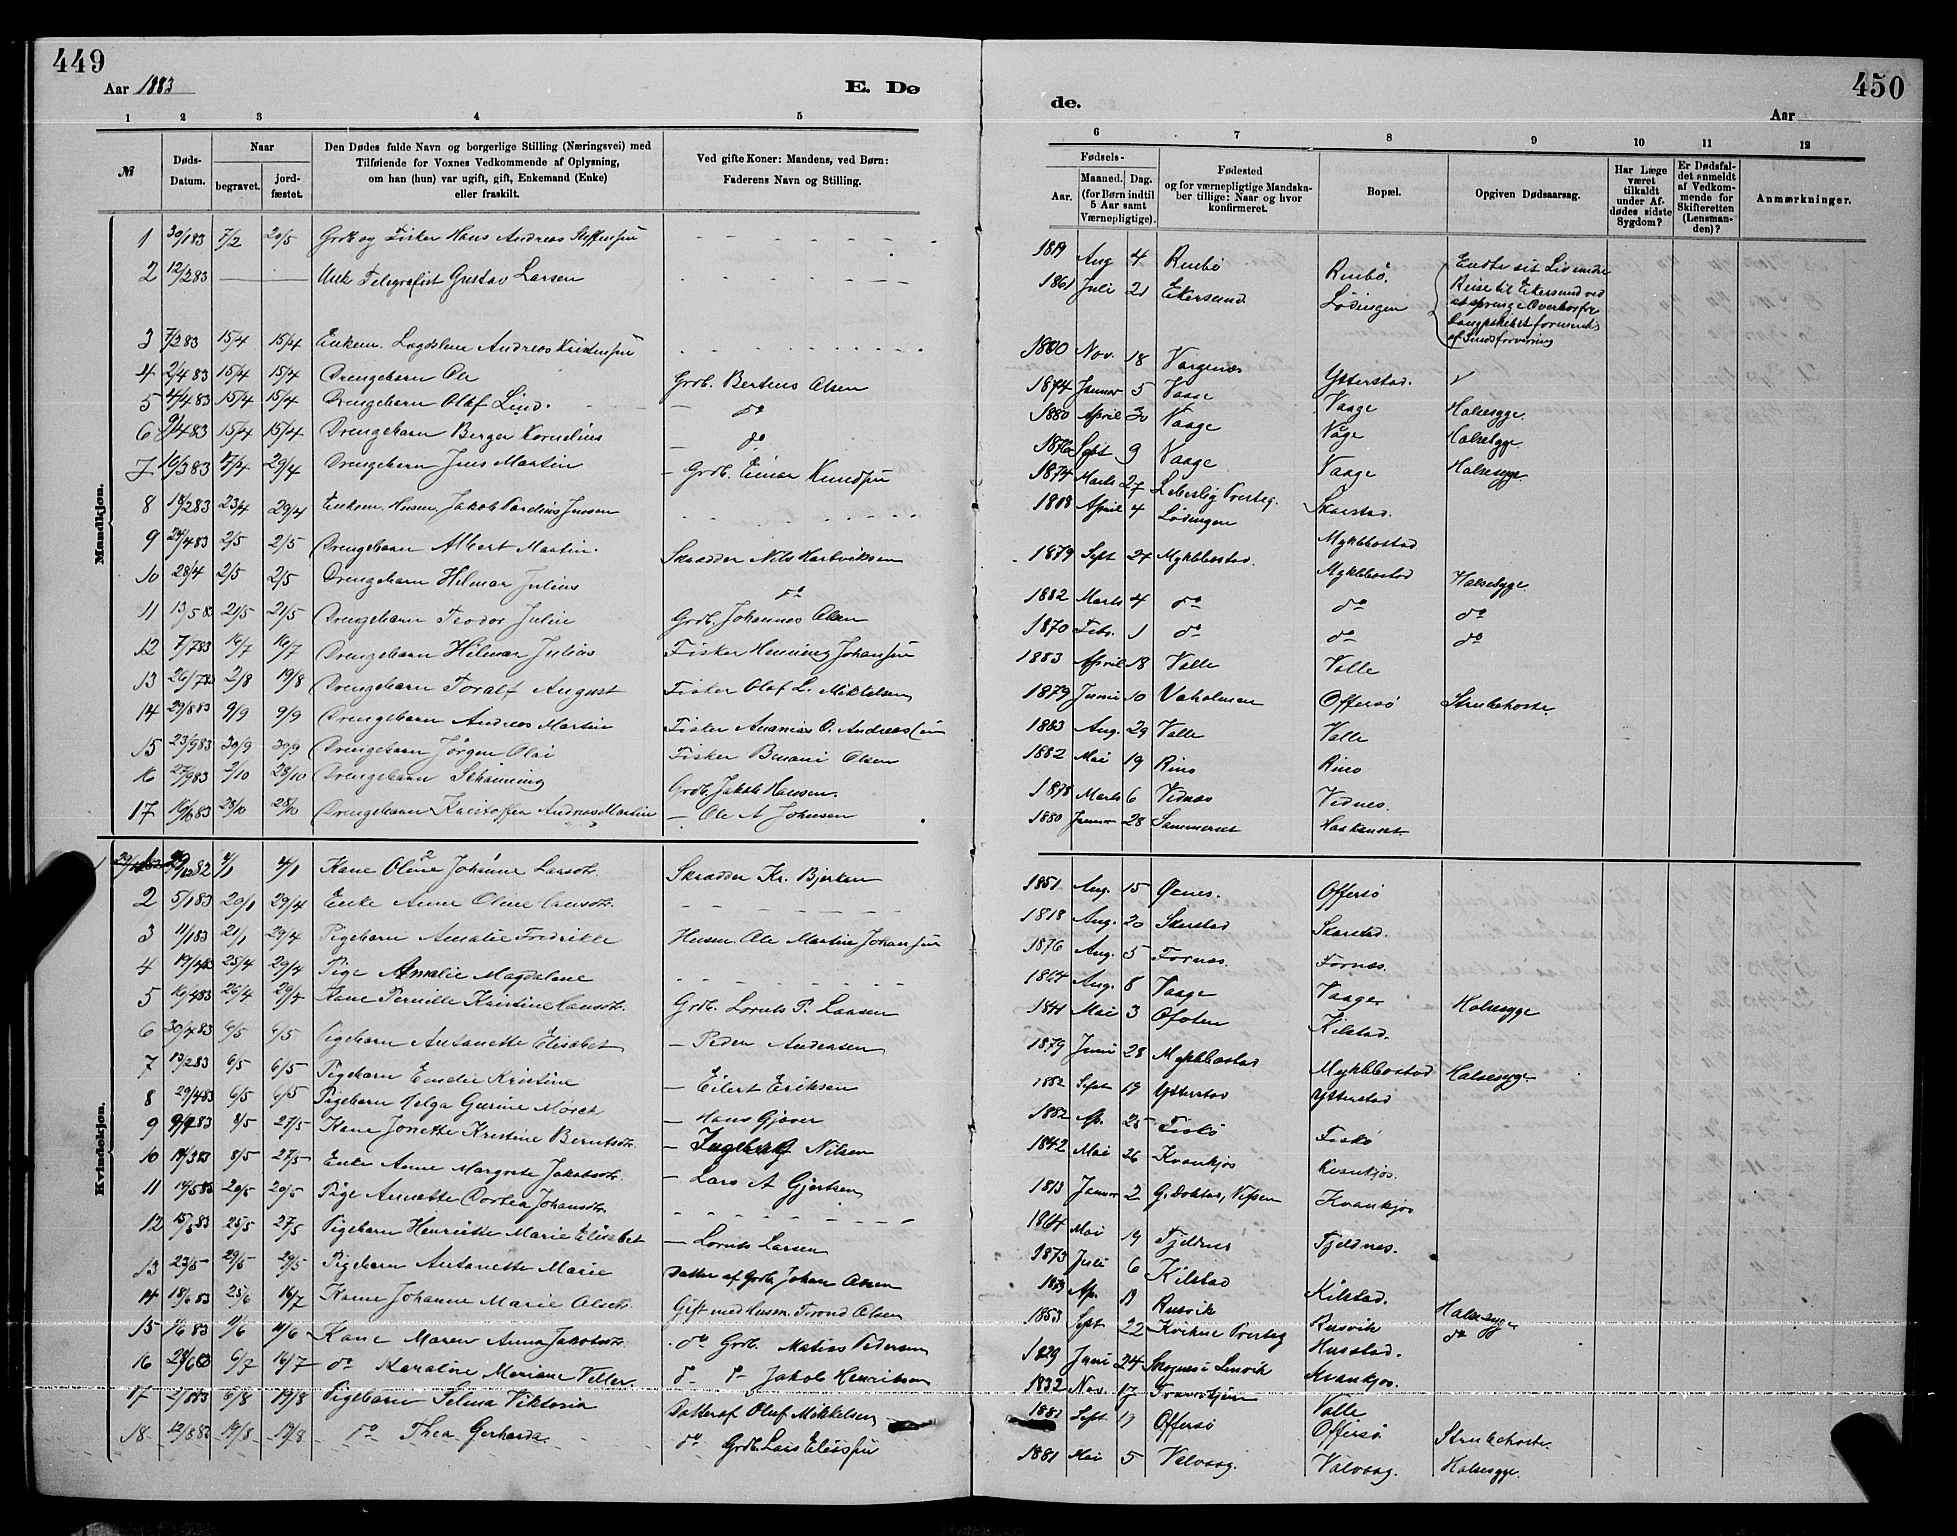 449
Aar 1883
E. Dø
1 2 3 4 5
№
Døds-Datum.
Naar
begravet.
jord-fæstet.
Den Dødes fulde Navn og borgerlige Stilling (Næringsvei) med
Tilføiende for Voxnes Vedkommende af Oplysning,
om han (hun) var ugift, gift, Enkemand (Enke)
eller fraskilt.
Ved gifte Koner: Mandens, ved Børn:
Faderens Navn og Stilling.
Mandkjøn.
1 30/1 83 7/2 20/5 Grdb og Fisker Hans Andreas Steffensen
2 12/2 83 Telegrafist Gustav Larsen
3 7/2 83 15/4 15/4 Enkem. Andreas
4 2/4 83 15/4 15/4 Drengebarn Ole Grdb. Bertens Olsen
5 4/4 83 15/4 15/4 Drengebarn Olaf Lind. — do
6 9/4 83 15/4 15/4 Drengebarn Berger Kornelius — do
7 16/3 83 29/4 Drengebarn Jens Martin — Grdb. Einar Knudsen
8 18/2 83 23/4 29/4 Enkem. Husm. Jakob Jensen
9 24/4 83 2/5 2/5 Drengebarn Albert Martin. Skrædder Nils Hartviksen
10 28/4 2/5 2/5 Drengebarn Hilmar Julius do
11 13/5 83 21/5 21/5 Drengebarn Teodor Julin Grdb. Johannes Olsen
12 7/7 83 16/7 16/7 Drengebarn Hilmar Julius Fisker Henning Johansen
13 26/7 83 2/8 19/8 Drengebarn Toralf August Fisker Olaf L. Mikkelsen
14 29/8 83 9/9 9/9 Drengebarn Andreas Martin Fisker Ananias O. Andreassen
15 23/9 83 30/9 30/9 Drengebarn Jørgen Olai Fisker Benoni Olsen
16 27/9 83 7/10 28/10 Drengebarn Schønning Grdb. Jakob Hansen.
17 16/10 83 28/10 28/10 Drengebarn Kristoffer Andreas Martin — Ole A Johnsen
Kvindekjøn.
1 29/12 82 4/1 4/1 Kone Oline Johanne Larsdtr. Skrædder Kr. Bjerken
2 5/1 83 20/1 29/4 Enke Anne Oline Hansdtr.
3 11/1 83 21/1 29/4 Pigebarn Amalie Fredrikke Husm. Ole Martin Johansen
4 19/4 83 25/4 29/4 Pige Amalie Magdalene
5 16/4 83 26/4 29/4 Kone Pernille Kristine Hansdtr. Grdb. Lornts P. Larsen
6 30/4 83 6/5 6/5 Pigebarn Antonette Elisabet — Peder Andersen
7 13/2 83 6/5 6/5 Pigebarn Emelie Kristine — Eilert Eriksen
8 29/4 83 6/5 6/5 Pigebarn Helga Gurine Mørch — Hans Gjæver
9 83 8/5 27/5 Kone Jonette Kristine Berntsdtr. — Ingebrigt Nilsen
10 14/3 83 8/5 27/5 Enke Anne Margrete Jakobsdtr. — Lars A Gjertsen
11 14/5 83 20/5 20/5 Pige Annette Dortea Johansdtr.
12 15/5 83 25/5 27/5 Pigebarn Henriette Marie Elisabet — Lornts Larsen
13 23/5 29/5 29/5 Pigebarn Antonette Marie Datter af Grdb. Johan Olsen
14 18/6 83 25/6 16/7 Kone Johanne Marie Olsdtr. Gift med Husm. Trond Olsen
15 1/6 83 11/6 11/6 Kone Maren Anna Jakobsdtr. do Grdb. Matias Pedersen
16 28/6 83 6/7 16/7 do Karoline Mariane Veller. do do Jakob Henriksen
17 2/8 83 6/8 19/8 Pigebarn Selma Viktoria Datter af Oluf Mikkelsen
18 12/8 83 19/8 19/8 do Thea Gerharda do Grdb. Lars Eliassen
450
de.
Aar
6 7 8 9 10 11 12
Fødsels-
Aar.
Maaned. Dag.
(for Børn indtil
5 Aar samt
Værnepligtige).
Fødested
og for værnepligtige Mandska-
ber tillige: Naar og hvor
konfirmeret.
Bopæl.
Opgiven Dødsaarsag.
Har Læge
været
tilkaldt
under Af-
dødes sidste
Sygdom?
Er Dødsfal-
det anmeldt
af Vedkom-
mende for
Skifteretten
(Lensman-
den)?
Anmærkninger.
1819 Aug 4 Rinbø Rinbø.
1861 Juli 21 Ekersund Lødingen
Endte sit Liv under
Reise til Ekersund ved
at springe Overbord fra
Dampskibet formentlig
af Sindsforvirring
1800 Nov. 18 Vargenes Ytterstad.
1874 Januar 5 Vaage Vaage Halsesyge.
1880 April 30 Vaage Våge Halsesyge
1876 Sept 9 Vaage Vaage Halsesyge
1874 Marts 27 Presteg. Skarstad.
1808 April 4 Lødingen Myklebostad
1879 Sept 24 Myklebostad. Myklebostad Halsesyge
1882 Marts 4 do do do
1870 Febr. 1 do do do
1883 April 18 Valle Valle
1879 Juni 10 Vaholmen Offersø Strubehoste.
1883 Aug. 29 Valle Valle
1882 Mai 19 Rinø Rinø
1878 Marts 6 Vidnæs Vidnes.
1880 Januar 28 Sommerset
1851 Aug. 15 Offersø
1818 Aug. 20 Skarstad Skarstad.
1876 Aug. 5 Fornæs. Fornæs.
1864 Aug. 8 Vaage Vaage Halsesyge
1841 Mai 3 Ofoten Kilstad.
1879 Juni 28 Myklebostad Myklebostad Halsesyge
1882 Sept 19 Ytterstad Ytterstad
1882 Ap. 25 Fiskø Fiskø
1842 Mai 26 Kvankjos Kvankjos.
1813 Januar 2 Vefsen Kvankjos
1864 Mai 19 Fjeldnes Fjeldnes.
1873 Juli 6 Kilstad Kilstad.
Ap. 19 Rusvik Rusvik Halsesyge
1853 Sept 22 Presteg Husstad. do
1829 Juni 24 Lenvik Kvankjos.
1832 Nov. 17 Valle
1882 Sept 19 Offersø Offersø Strubehoste.
1881 Mai 5 Valvaag. Valvaag. Halsesyge.